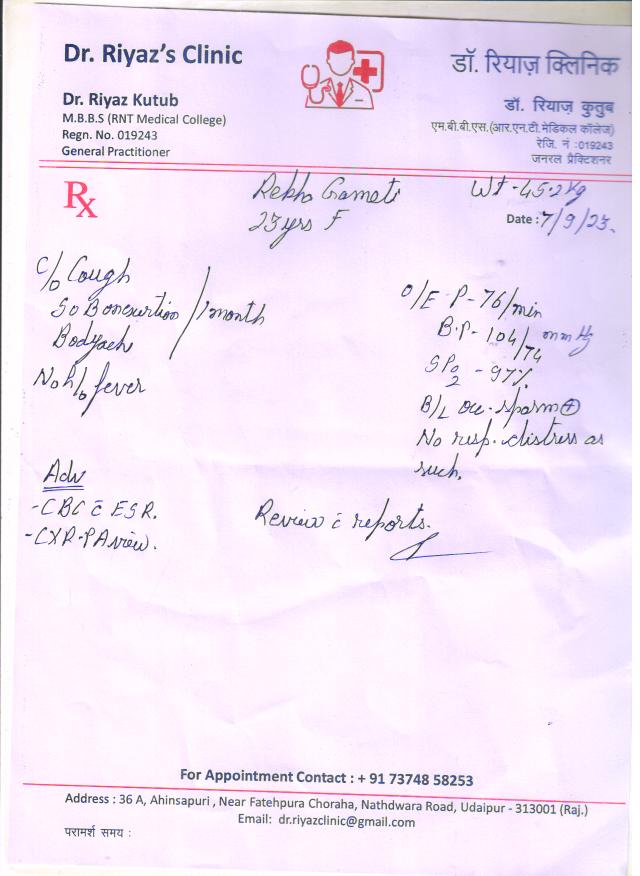 Dr. Riyaz's Clinic
डॉ. रियाज़ क्लिनिक
Dr. Riyaz Kutub
M.B.B.S (RNT Medical College)
Regn. No. 019243
General Practitioner
डॉ. रियाज़ कुतुब
एम.बी.बी.एस.(आर.एन.टी.मेडिकल कॉलेज)
रेजि. नं :019243
जनरल प्रैक्टिशनर
Rx
Rekha Gameti
23yrs F
Wt-45.2kg
Date :7/9/23.
c/o Cough
SoB on exertion / 1month
Bodyache
No h/o fever
O/E P-76/min
B.P-104/74 mmHg
SPO2 -97%
B/L occ. spasm ⊕
No resp. distress as
such.
Adv
-CBC c̄ ESR.
-CXR-PA view.
Review c̄ reports.
For Appointment Contact : + 91 73748 58253
Address : 36 A, Ahinsapuri , Near Fatehpura Choraha, Nathdwara Road, Udaipur - 313001 (Raj.)
Email: dr.riyazclinic@gmail.com
परामर्श समय :